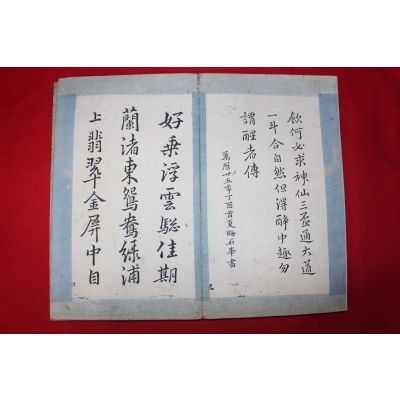 飲何必求神仙三盃通大道
一斗合自然但得醉中趣勿
謂醒者傳
萬曆廿五年丁酉首夏晦石峯書
好乘浮雲驄佳期
蘭渚東鴛鴦綠浦
上翡翠金屏中自